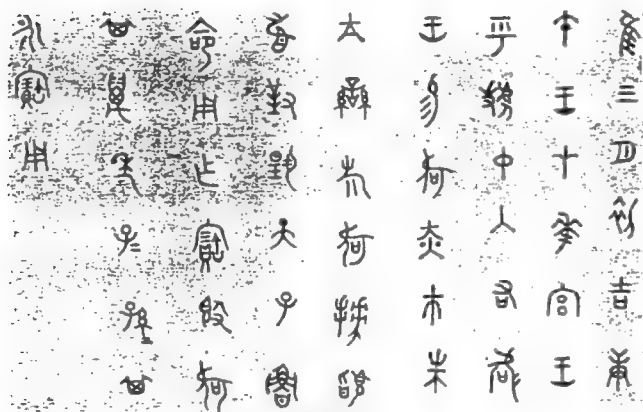 隹三月初吉庚
午王才華宮王
乎虢中入右何
王易何赤巿朱
亢䜌旂何拜稽
首對揚天子魯
命用乍寶簋何
其萬年子=孫=其
永寶用